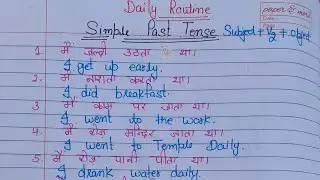 Daily Routine
Simple Past Tense Subject + V2 + object
1. मैं जल्दी उठता था।
I get up early.
2. मैं नाश्ता करता था।
I did breakfast.
3. मैं काम पर जाता था।
I went to the work.
4. मैं रोज़ मन्दिर जाता था।
I went to Temple Daily.
5. मैं रोज़ पानी पीता था।
I drank water daily.